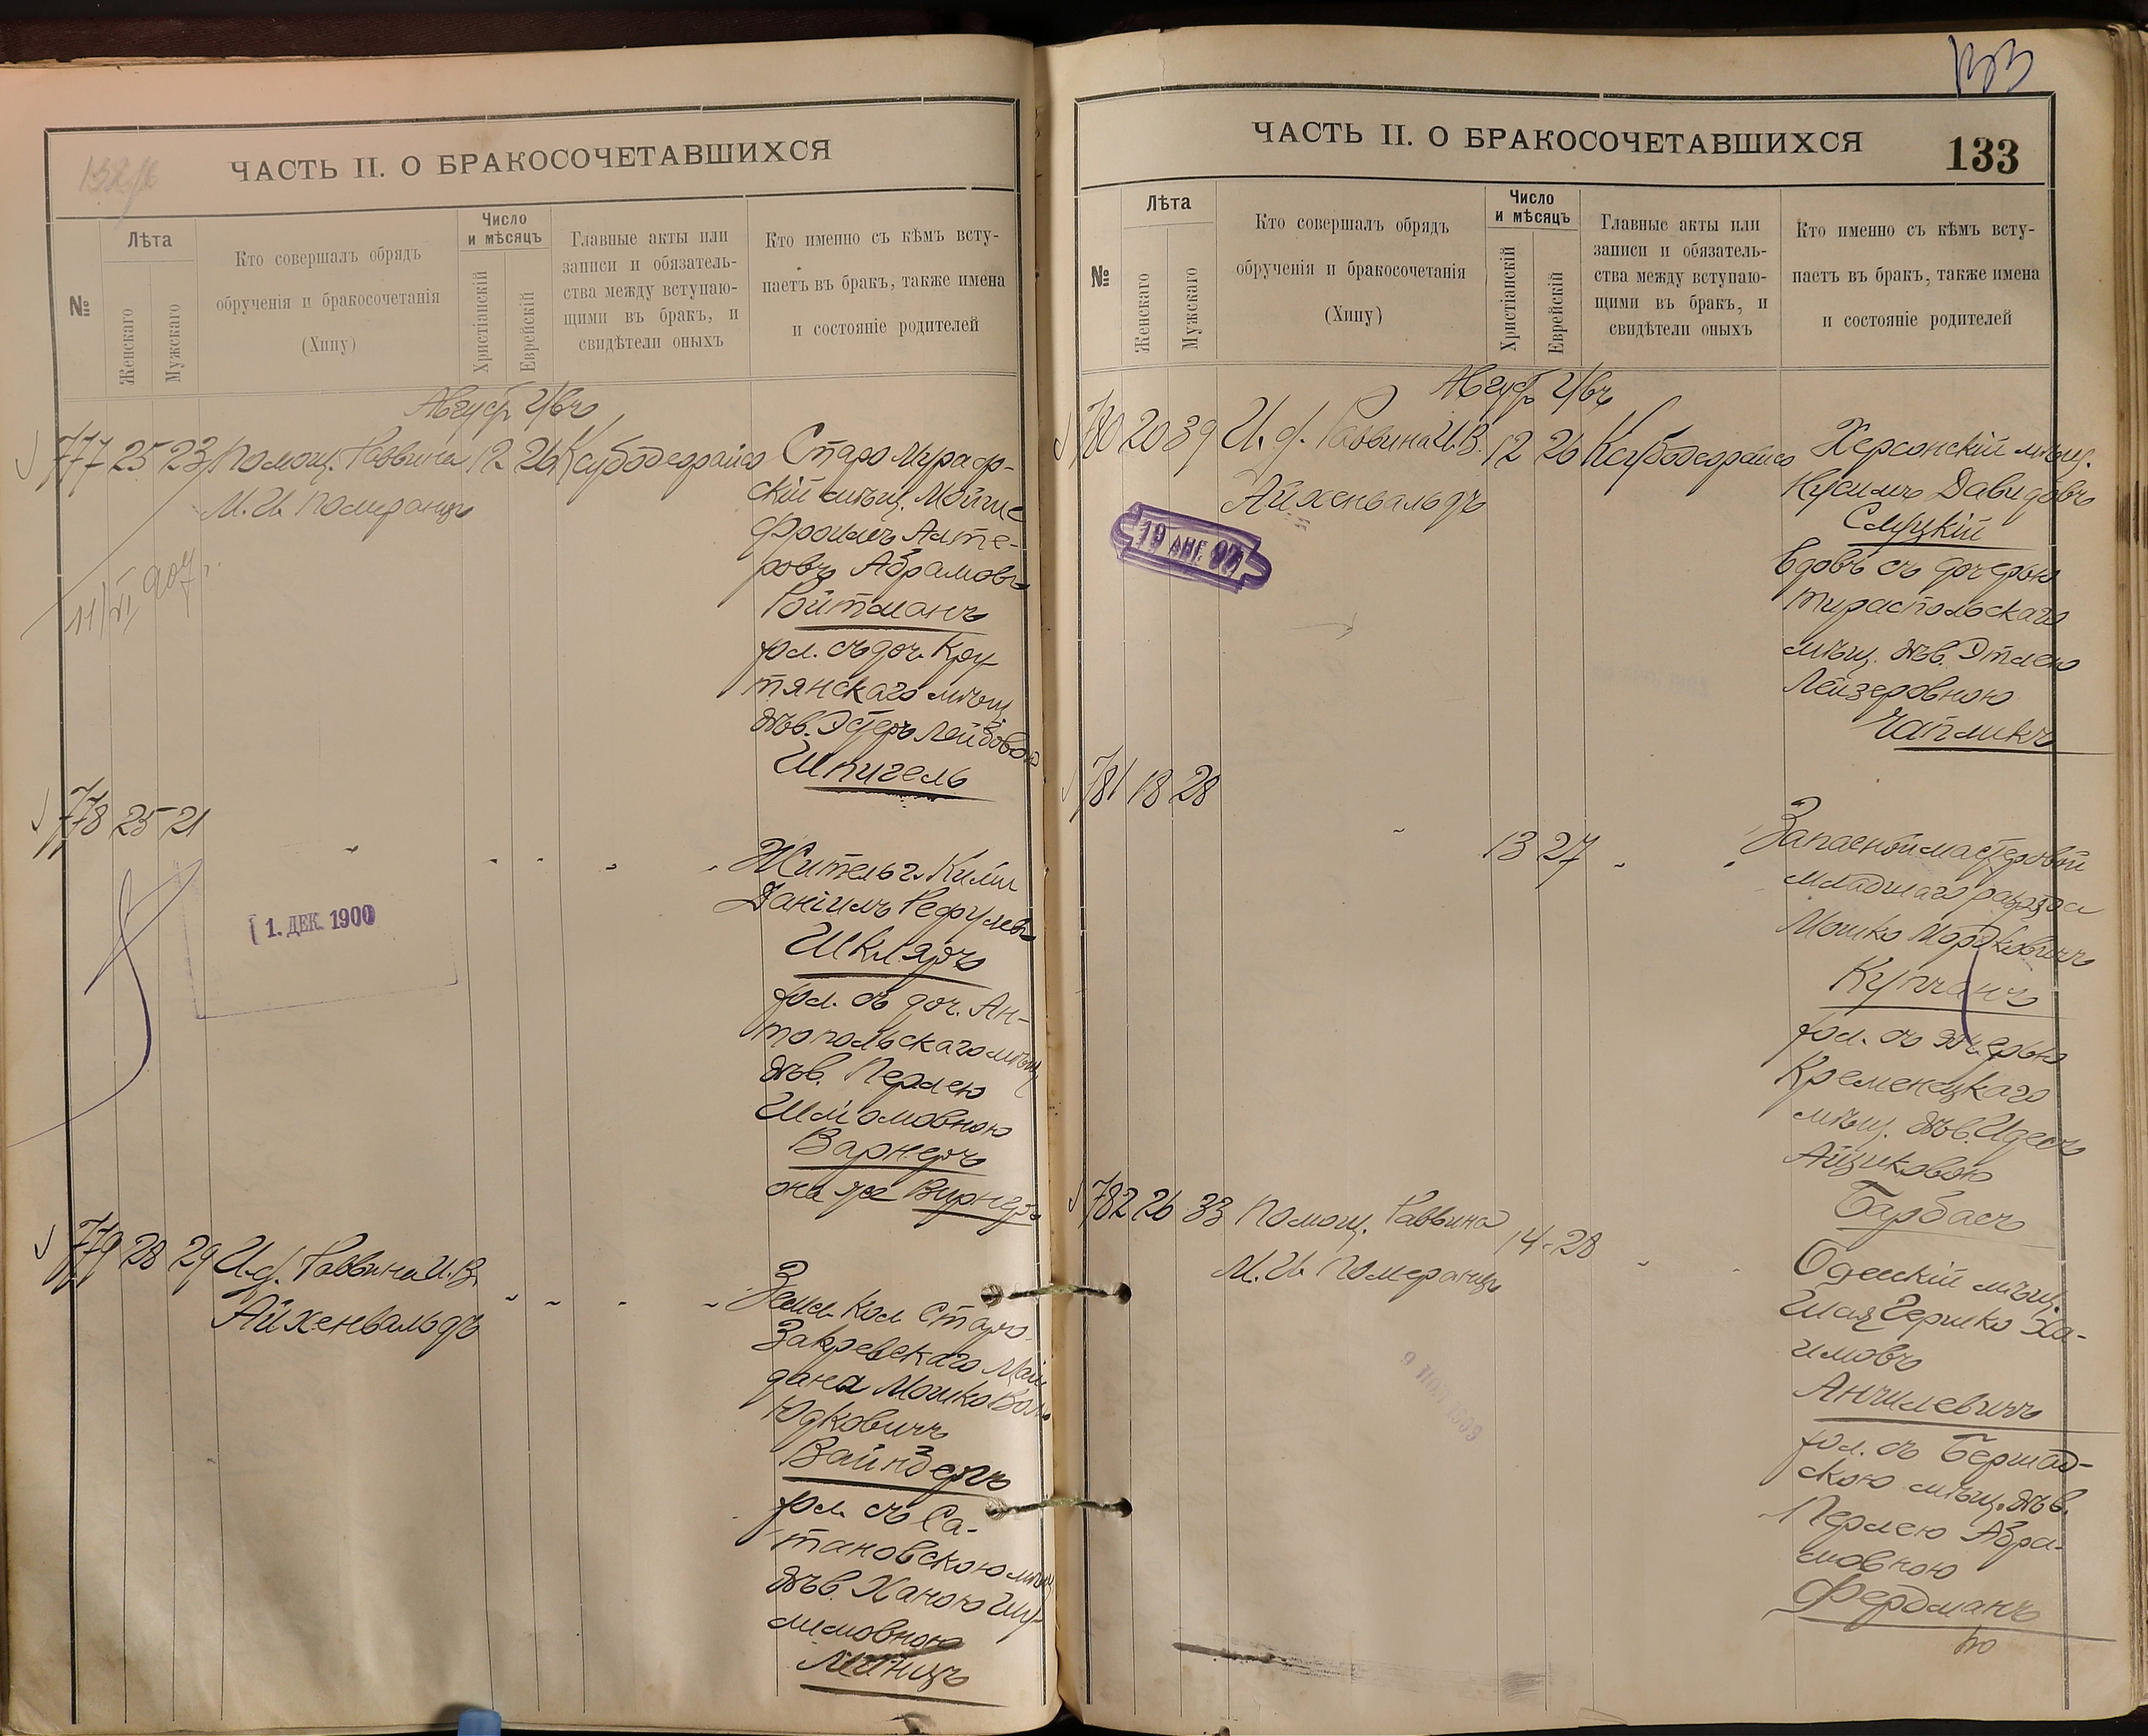 ЧАСТЬ II. О БРАКОСОЧЕТАВШИХСЯ
№
Лѣта
Женскаго
Мужскаго
Кто совершалъ обрядъ
обрученія и бракосочетанія
(Хипу)
Число
и мѣсяцъ
Христіанскій
Еврейскій
Главные акты или
записи и обязатель-
ства между вступаю-
щими въ бракъ, и
свидѣтели оныхъ
Кто именно съ кѣмъ всту-
паетъ въ бракъ, также имена
и состояніе родителей
Август
777 25 23 Помощ. Раввина 12 26
М. И. Померанцъ
Старо Мураф-
скій мѣщ. Мойше
Фроимъ Алте-
ровъ Абрамовъ
Ройтманъ
хол. съ доч. Кру-
тянскаго мѣщ.
дѣв. Эстеръ Лейбовой
Шпигель
778 25 21
1. ДЕК. 1900
Житель г. Киліи
Даніилъ
Шкляръ
хол. съ доч. Ан-
топольскаго мѣщ.
дѣв. Перлею
Шліомовною
Варнеръ
она же Вирнеръ
779 28 29 И.д. Раввина И.В.
Айхенвальдъ
Старо
Закревскаго Май
дана Мошко Вол
Юдковичъ
Вайнбергъ
хол. съ Са-
тановскою мѣщ.
дѣв. Ханою Шу-
лимовною
Минцъ
ЧАСТЬ II. О БРАКОСОЧЕТАВШИХСЯ
133
133
№
Лѣта
Женскаго
Мужскаго
Кто совершалъ обрядъ
обрученія и бракосочетанія
(Хипу)
Число
и мѣсяцъ
Христіанскій
Еврейскій
Главные акты или
записи и обязатель-
ства между вступаю-
щими въ бракъ, и
свидѣтели оныхъ
Кто именно съ кѣмъ всту-
паетъ въ бракъ, также имена
и состояніе родителей
Август
780 20 39 И.д. Раввина И.В. 12 26
Айхенвальдъ
Херсонскій мѣщ.
Кусимъ Давидовъ
Слуцкій
вдовъ съ дочерью
тираспольскаго
мѣщ. дѣв. Этлею
Лейзеровною
Чапликъ
781 18 28
13 27
Запасной мастеровой
младшаго разряда
Мошко Мордковичъ
Купчанъ
хол. съ дочерью
Кременецкаго
мѣщ. дѣв. Идесъ
Айзиковою
Барбасъ
782 26 33 Помощ. Раввина 14 28
М. И. Померанцъ
Одесскій мѣщ.
Шая Гершко Ха-
имовъ
Анчилевичъ
хол. съ Бершад-
скою мѣщ. дѣв.
Перлею Абра-
мовною
Фердманъ